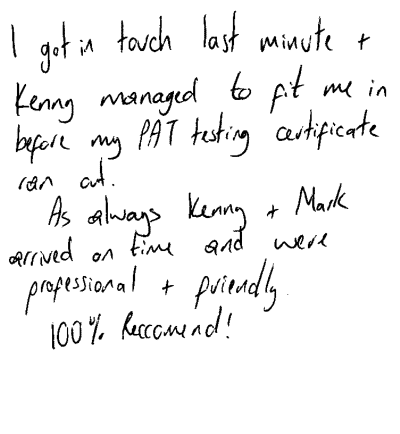 I got in touch last minute +
Kenny managed to fit me in
before my PAT testing certificate
ran out.
As always Kenny + Mark
arrived on time and were
professional + friendly.
100% Reccomend!